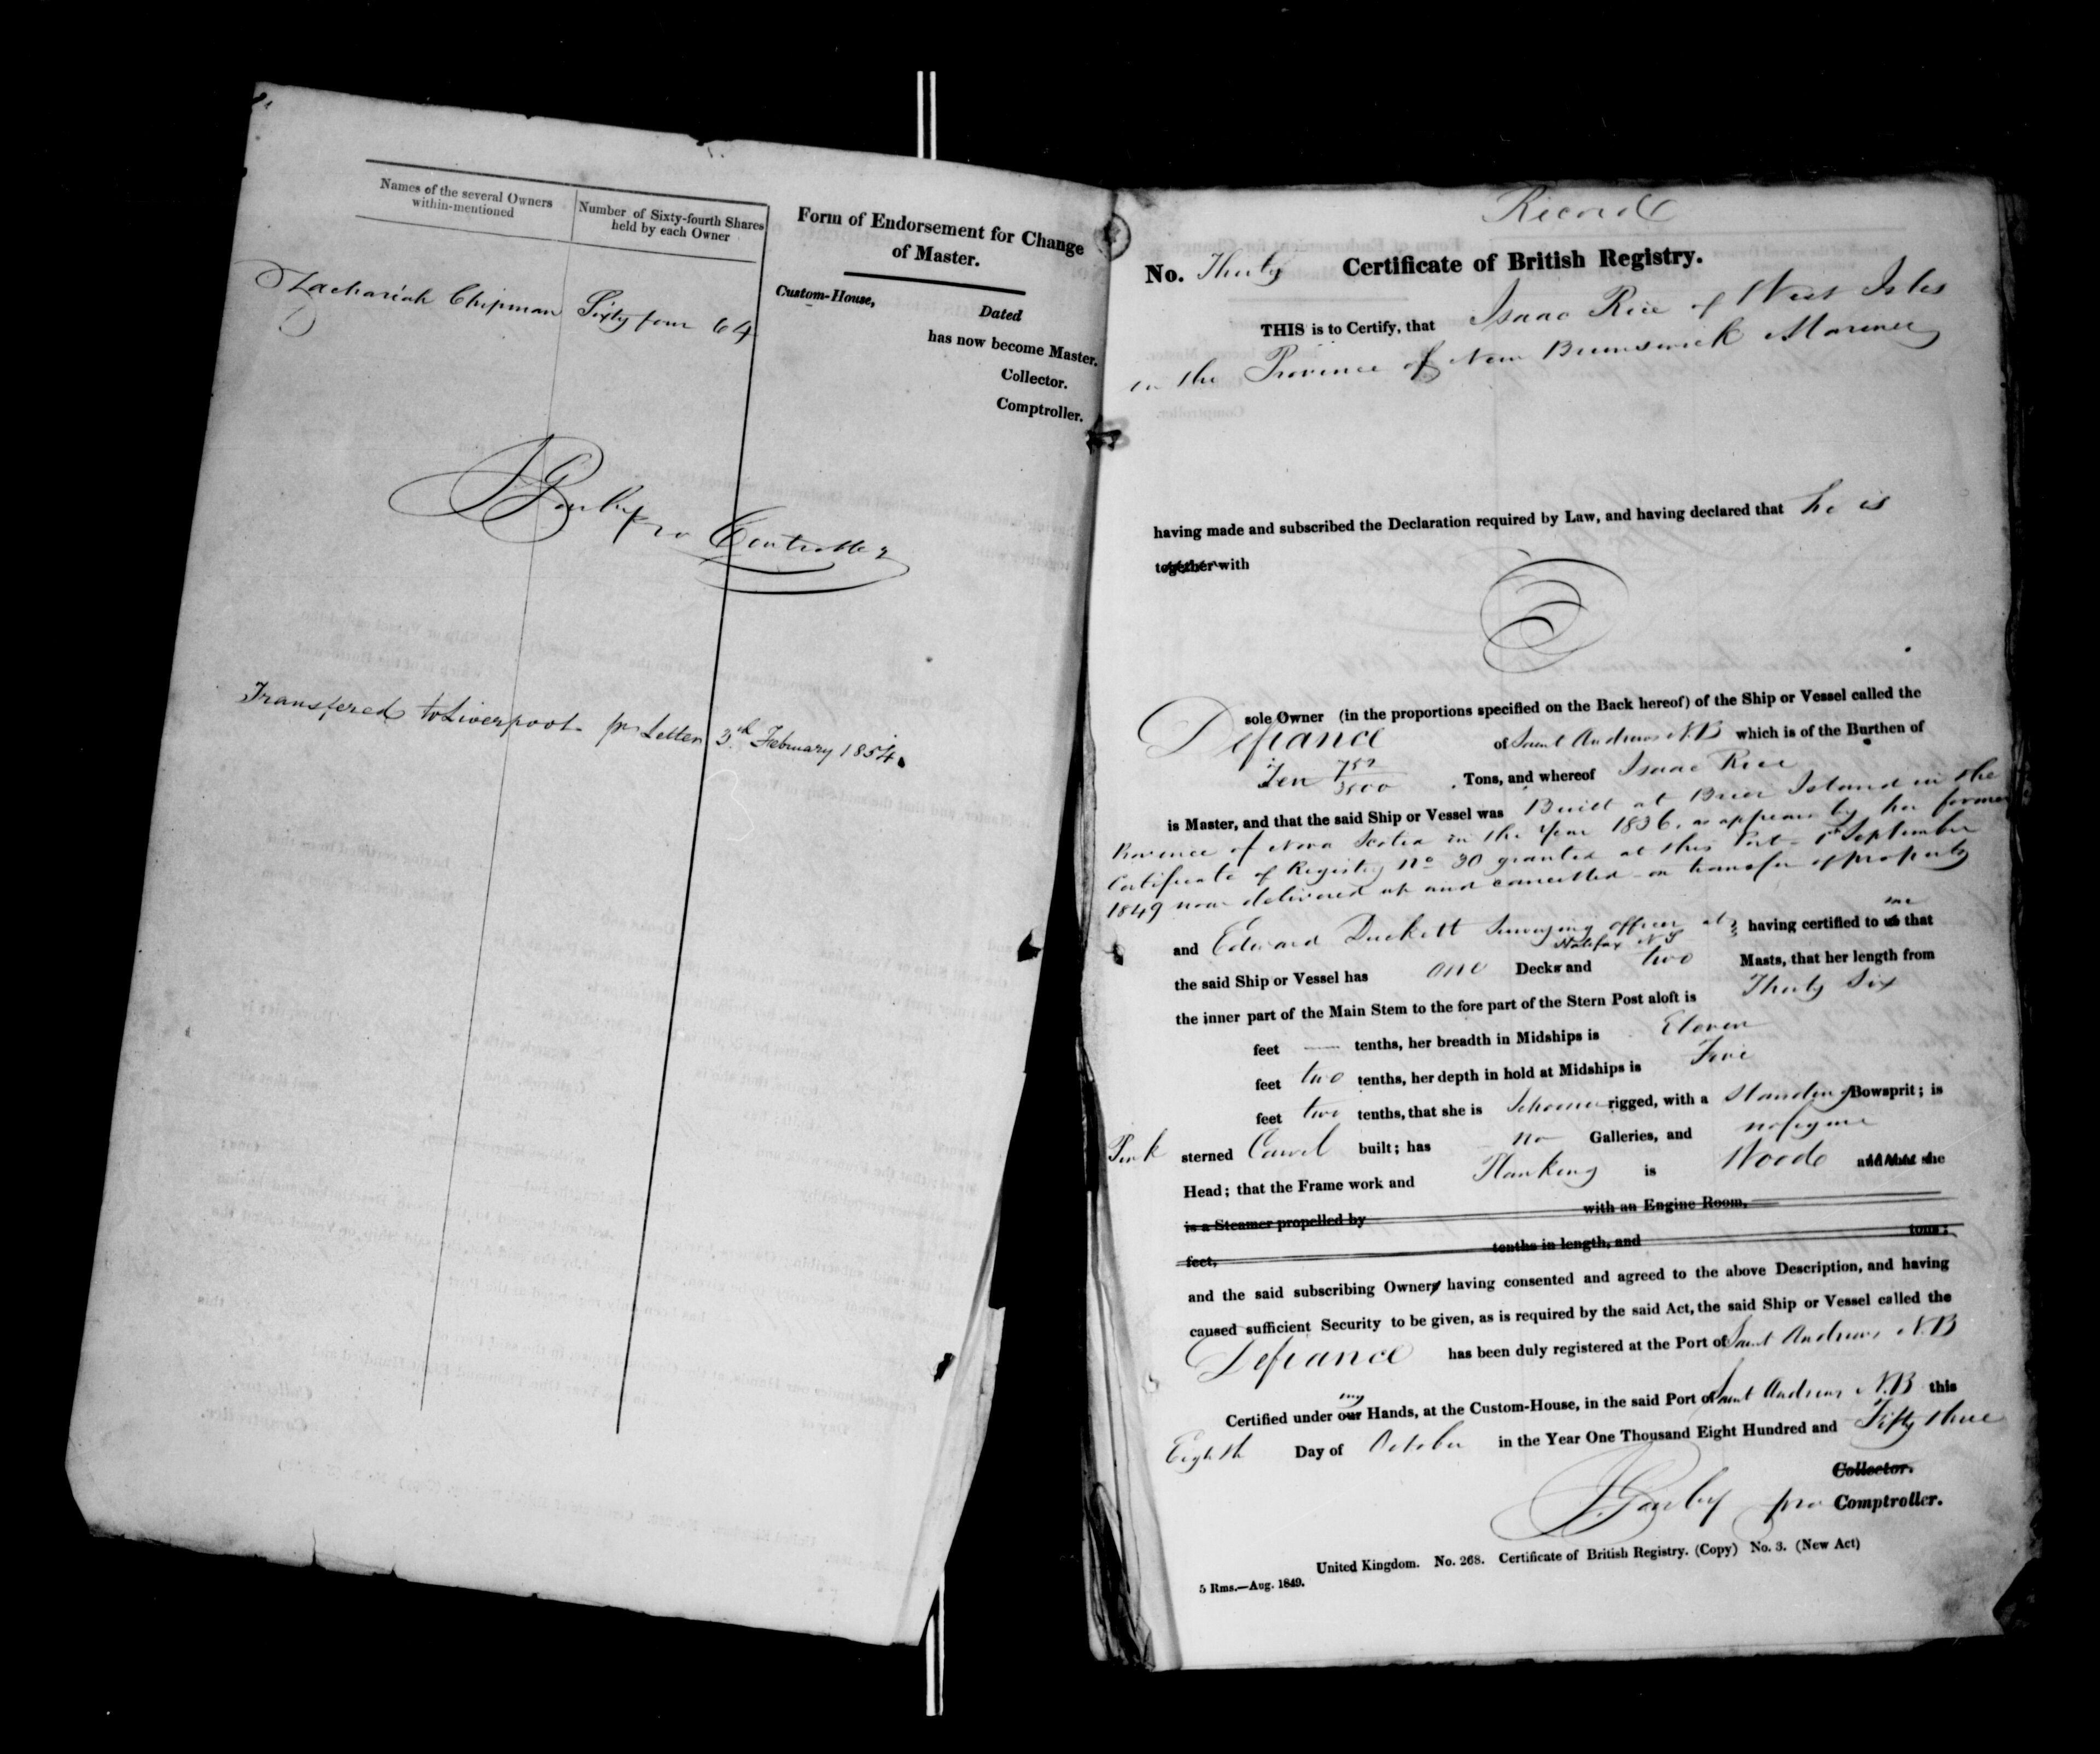 Names of the several Owners
within-mentioned
Number of Sixty-fourth Shares
held by each Owner
Zachariah Chipman Sixty four 64
Form of Endorsement for Change
of Master.
Custom-House,
Dated
has now become Master.
Collector.
Comptroller.
pro Controller
Transfered to Liverpool pr Letter 3rd February 1854.
Record
No. Thirty Certificate of British Registry.
THIS is to Certify, that Isaac Rice of West Isles
in the Province of New Brunswick Mariner
having made and subscribed the Declaration required by Law, and having declared that he is
together with
sole Owner (in the proportions specified on the Back hereof) of the Ship or Vessel called the
Defiance of Saint Andrews N.B which is of the Burthen of
Ten Tons, and whereof Isaac Rice
is Master, and that the said Ship or Vessel was Built at Brier Island in the
Province of Nova Scotia in the Year 1836, as appears by her former
Certificate of Registry No 30 granted at this Port September
1849 now delivered up and cancelled on transfer of property
and Edward Duckett Surveying officer at Halifax NS having certified to us me that
the said Ship or Vessel has one Decks and two Masts, that her length from
the inner part of the Main Stem to the fore part of the Stern Post aloft is Thirty Six
feet — tenths, her breadth in Midships is Eleven
feet two tenths, her depth in hold at Midships is Five
feet two tenths, that she is Schooner rigged, with a Standing Bowsprit; is
Pink sterned Carvel built; has no Galleries, and no figure
Head; that the Frame work and Planking is Wood and that she
is a Steamer propelled by with an Engine Room,
feet, tenths in length, and tons;
and the said subscribing Owners having consented and agreed to the above Description, and having
caused sufficient Security to be given, as is required by the said Act, the said Ship or Vessel called the
Defiance has been duly registered at the Port of Saint Andrews N.B
Certified under our my Hands, at the Custom-House, in the said Port of Saint Andrews N.B this
Eighth Day of October in the Year One Thousand Eight Hundred and Fifty three
Collector.
pro Comptroller.
United Kingdom. No. 268. Certificate of British Registry. (Copy) No. 3. (New Act)
5 Rms.—Aug. 1849.